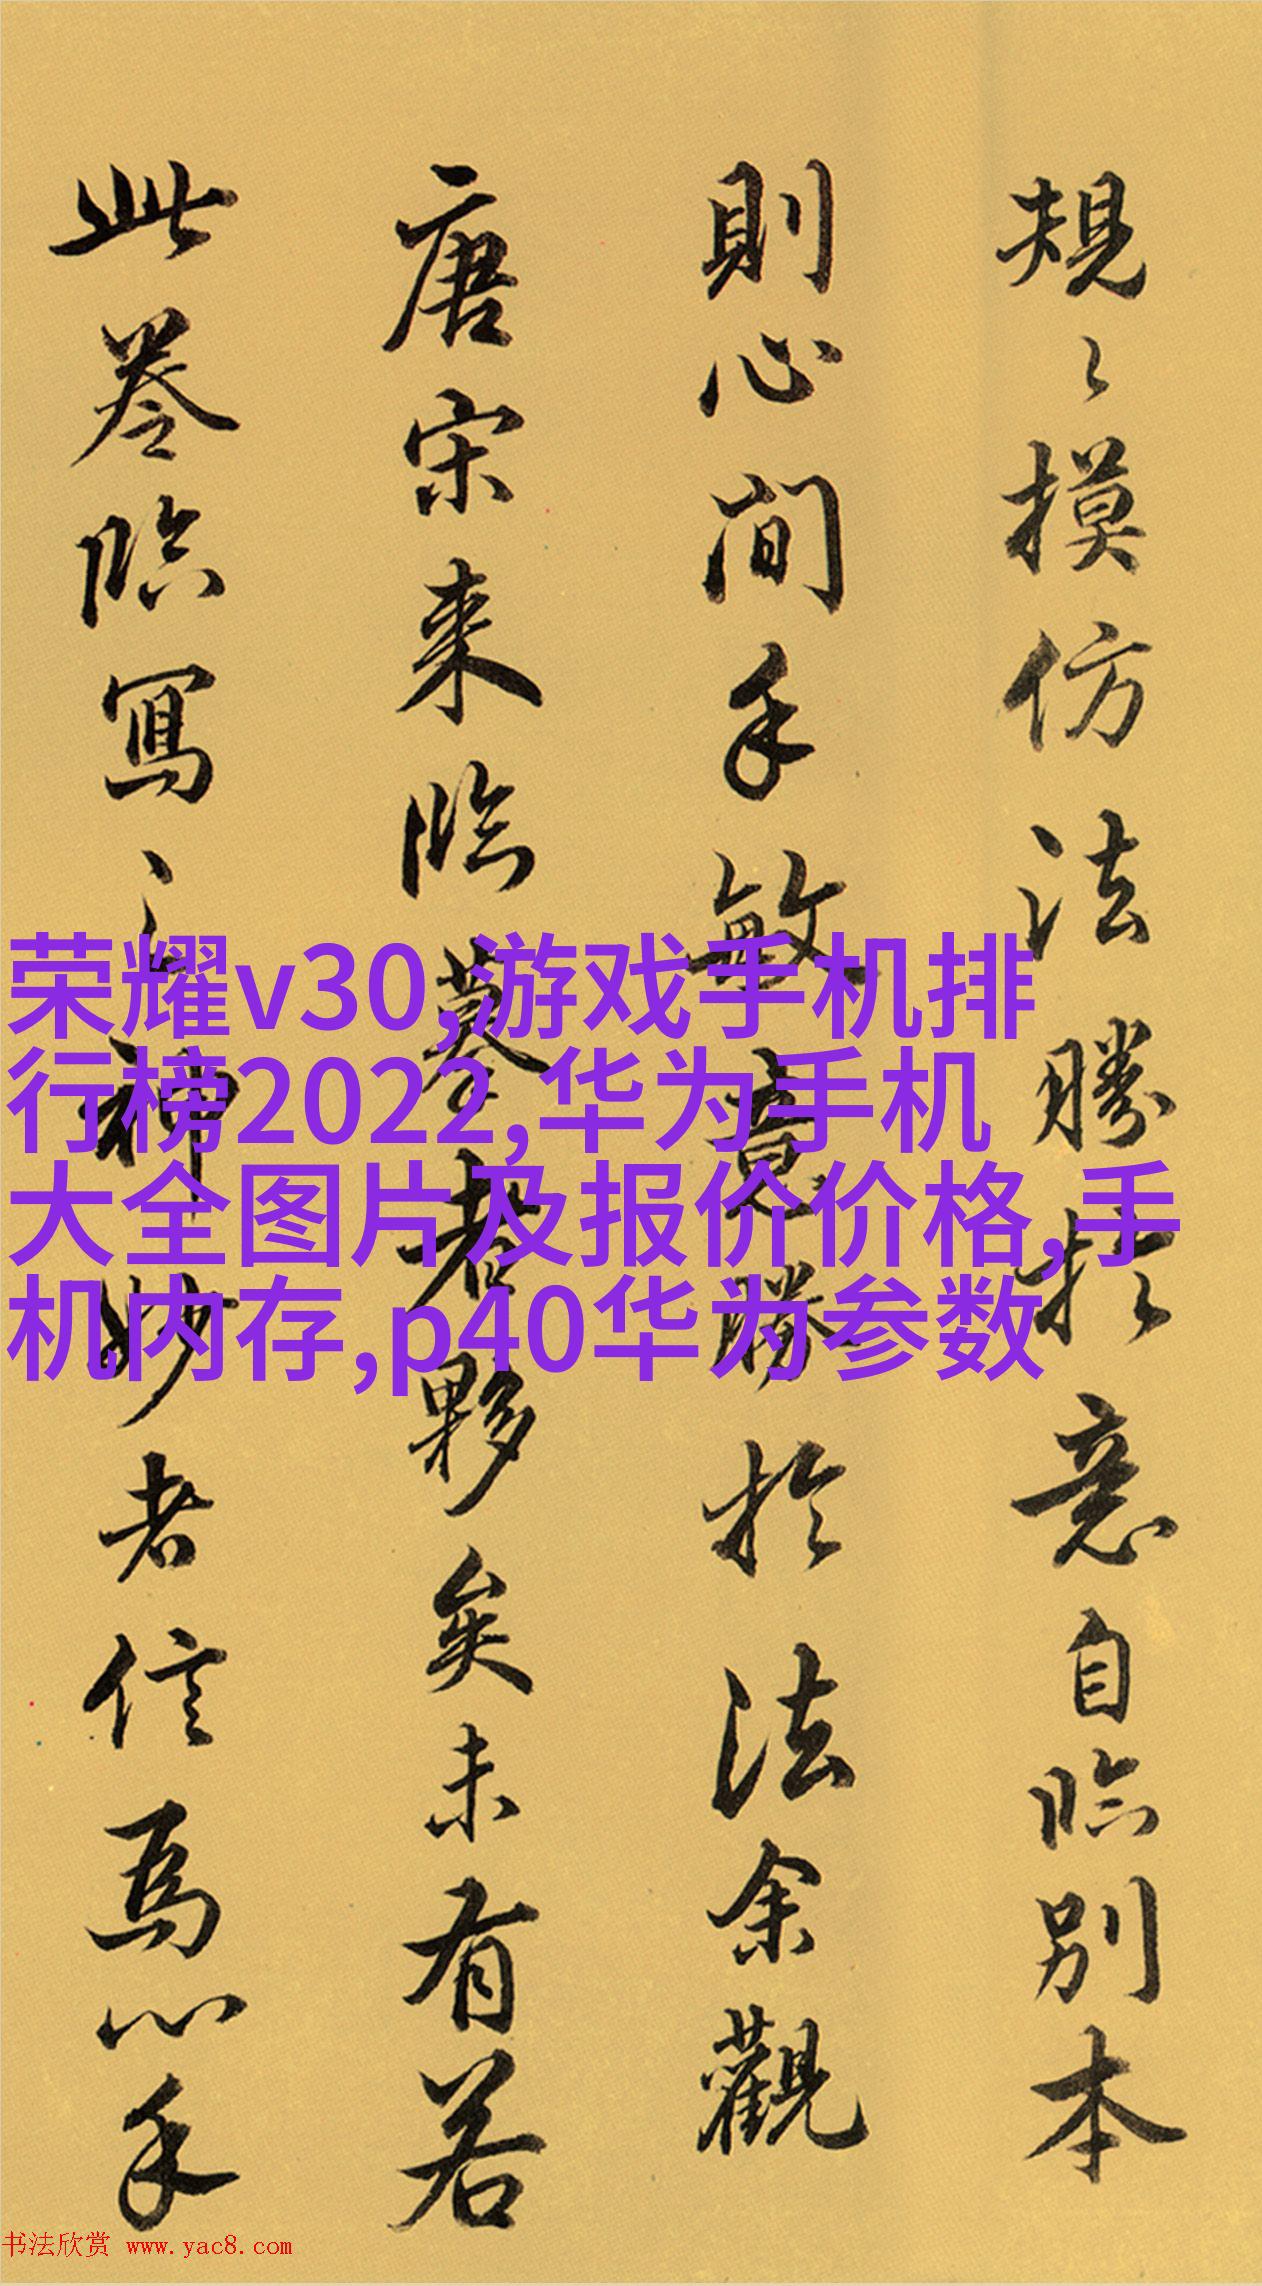 規〻摸仿法勝於意自临別本
則心间手敏意勝於法余觀
唐宋来临摹者夥矣未有若
此卷临寫之神妙者信焉心手
荣耀v30,游戏手机排
行榜2022,华为手机
大全图片及报价价格,手
机内存,p40华为参数
书法欣赏 www.yac8.com